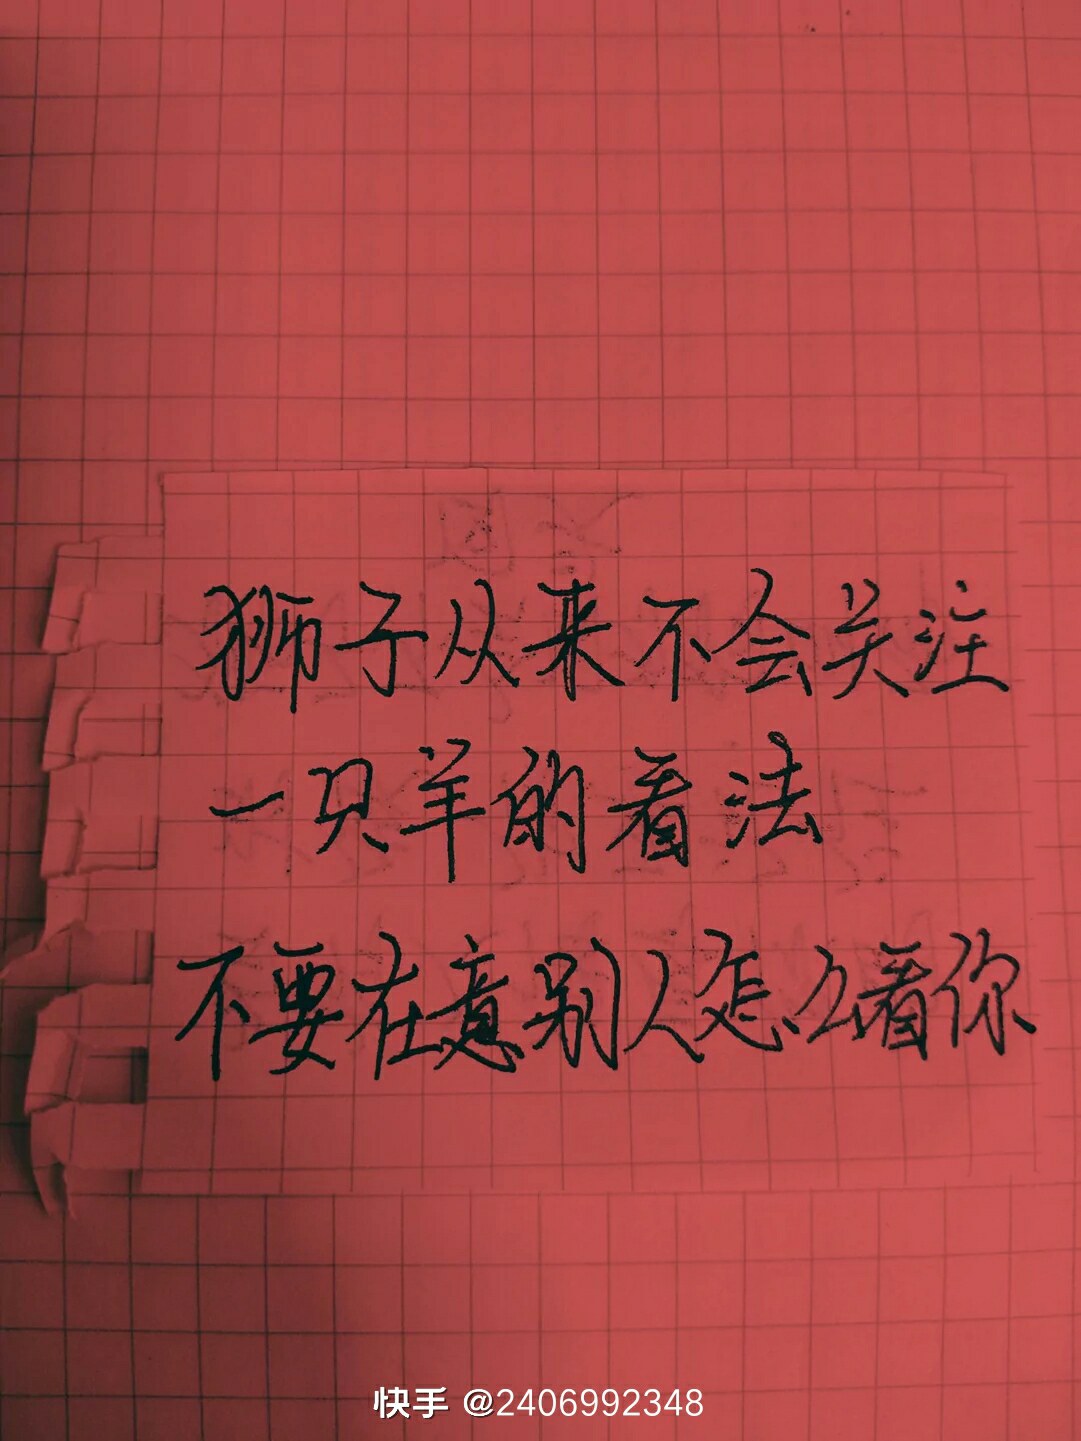 狮子从来不会关注
一只羊的看法
不要在意别人怎么看你
快手 @2406992348